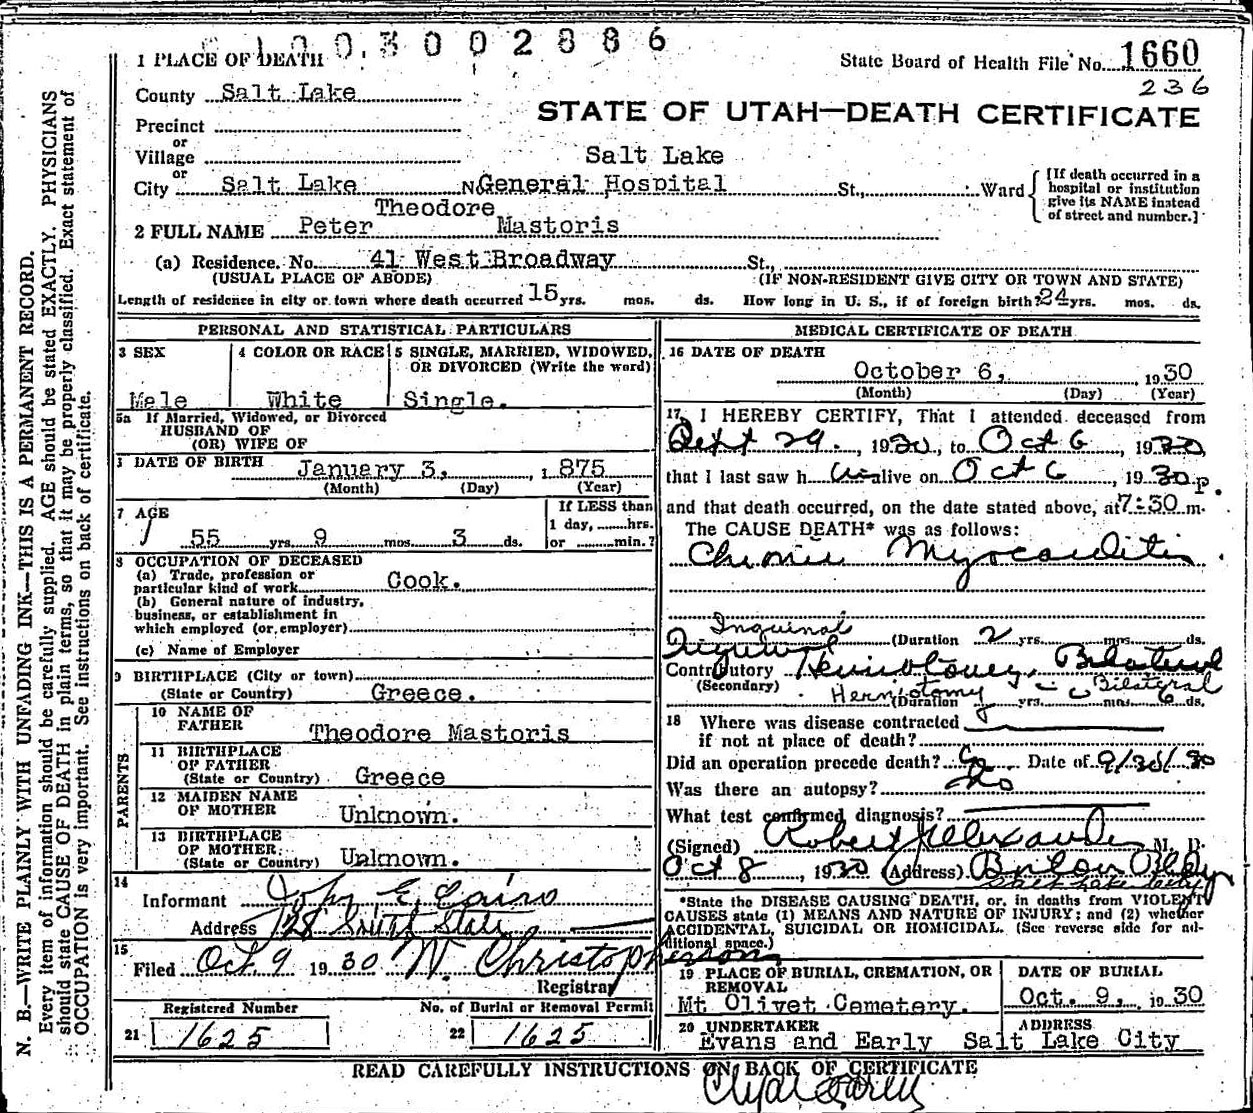 1003002886
1 PLACE OF DEATH
State Board of Health File No. 1660
236
County Salt Lake
STATE OF UTAH—DEATH CERTIFICATE
Precinct
or
Village
Salt Lake
or
City Salt Lake N General Hospital St., Ward
[If death occurred in a
hospital or institution
give its NAME instead
of street and number.]
Theodore
2 FULL NAME Peter Mastoris
(a) Residence. No. 41 West Broadway St.,
(USUAL PLACE OF ABODE) (IF NON-RESIDENT GIVE CITY OR TOWN AND STATE)
Length of residence in city or town where death occurred 15 yrs. mos. ds. How long in U. S., if of foreign birth? 24 yrs. mos. ds.
PERSONAL AND STATISTICAL PARTICULARS
3 SEX
Male
4 COLOR OR RACE
White
5 SINGLE, MARRIED, WIDOWED,
OR DIVORCED (Write the word)
Single.
5a If Married, Widowed, or Divorced
HUSBAND OF
(OR) WIFE OF
DATE OF BIRTH January 3, 1875
(Month) (Day) (Year)
7 AGE
55 yrs. 9 mos. 3 ds.
If LESS than
1 day, hrs.
or min.?
8 OCCUPATION OF DECEASED
(a) Trade, profession or
particular kind of work Cook.
(b) General nature of industry,
business, or establishment in
which employed (or employer)
(c) Name of Employer
9 BIRTHPLACE (City or town)
(State or Country) Greece.
PARENTS
10 NAME OF
FATHER Theodore Mastoris
11 BIRTHPLACE
OF FATHER
(State or Country) Greece
12 MAIDEN NAME
OF MOTHER Unknown.
13 BIRTHPLACE
OF MOTHER
(State or Country) Unknown.
14
Informant John E.
Address 728 South State
15
Filed Oct 9 1930 W. Christopherson
Registrar
Registered Number
21 1625
No. of Burial or Removal Permit
22 1625
MEDICAL CERTIFICATE OF DEATH
16 DATE OF DEATH
October 6, 1930
(Month) (Day) (Year)
17 I HEREBY CERTIFY, That I attended deceased from
Sept 29. 1930, to Oct 6, 1930,
that I last saw h im alive on Oct 6, 1930
and that death occurred, on the date stated above, at 7:30 p. m.
The CAUSE DEATH* was as follows:
Chronic Myocarditis.
Inguinal
Inguinal (Duration 2 yrs. mos. ds.
Contributory Herniotomy, Bilateral
(Secondary) Herniotomy Bilateral
(Duration yrs. mos. 6 ds.
18 Where was disease contracted
if not at place of death?
Did an operation precede death? Date of 9/30/30
Was there an autopsy? No
What test confirmed diagnosis?
(Signed) Robert J Alexander M. D.
Oct 8, 1930 (Address) Boston Bldg
Salt Lake City
*State the DISEASE CAUSING DEATH, or, in deaths from VIOLENT
CAUSES state (1) MEANS AND NATURE OF INJURY; and (2) whether
ACCIDENTAL, SUICIDAL OR HOMICIDAL. (See reverse side for ad-
ditional space.)
19 PLACE OF BURIAL, CREMATION, OR
REMOVAL
Mt Olivet Cemetery.
DATE OF BURIAL
Oct. 9, 1930
20 UNDERTAKER
Evans and Early
ADDRESS
Salt Lake City
READ CAREFULLY INSTRUCTIONS ON BACK OF CERTIFICATE
N. B.—WRITE PLAINLY WITH UNFADING INK—THIS IS A PERMANENT RECORD.
Every item of information should be carefully supplied. AGE should be stated EXACTLY. PHYSICIANS
should state CAUSE OF DEATH in plain terms, so that it may be properly classified. Exact statement of
OCCUPATION is very important. See instructions on back of certificate.